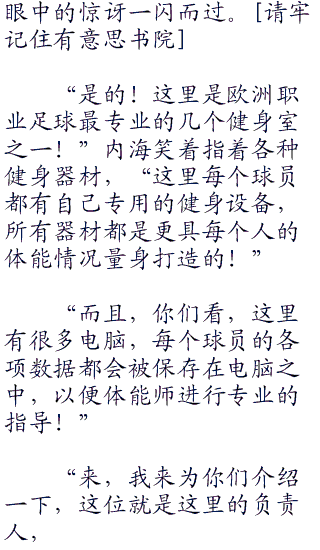 眼中的惊讶一闪而过。[请牢
记住有意思书院]
“是的！这里是欧洲职
业足球最专业的几个健身室
之一！”内海笑着指着各种
健身器材，“这里每个球员
都有自己专用的健身设备，
所有器材都是更具每个人的
体能情况量身打造的！”
“而且，你们看，这里
有很多电脑，每个球员的各
项数据都会被保存在电脑之
中，以便体能师进行专业的
指导！”
“来，我来为你们介绍
一下，这位就是这里的负责
人，